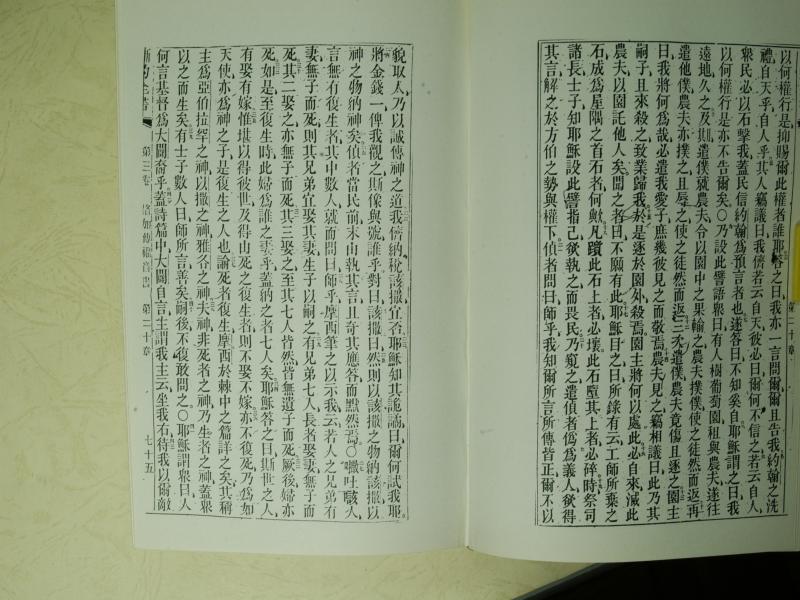 以何權行是抑賜爾此權者誰耶答之曰我亦一言問爾爾且告我約翰之洗
禮自天乎自人乎其人竊議曰我儕若云自天彼必曰爾何不信之若云自人
衆民必以石擊我蓋民信約翰爲預言者也遂答曰不知奚自耶穌謂之曰我
以何權行是亦不告爾矣○乃設此譬語衆曰有人樹葡萄園租與農夫遂往
遠地久之及期遣僕就農夫令以園中之果輸之農夫撲僕使之徒然而返再
遣他僕農夫亦撲之且辱之使之徒然而返三次遣僕農夫竟傷且逐之園主
曰我將何爲哉必遣我愛子庶幾彼見之而敬焉農夫見之竊相議曰此乃其
嗣子且來殺之致業歸我於是逐於園外殺焉園主將何以處此必自來滅此
農夫以園託他人矣聞之者曰不願有此耶穌目之曰所錄有云工師所棄之
石成爲屋隅之首石者何歟凡躓此石上者必壞此石墮其上者必碎時祭司
諸長士子知耶穌設此譬指己欲執之而畏民乃窺之遣偵者僞爲義人欲得
其言解之於方伯之勢與權下偵者問曰師乎我知爾所言所傳皆正爾不以
貌取人乃以誠傳神之道我儕納稅該撒宜否耶穌知其詭譎曰爾何試我耶
將金錢一俾我觀之斯像與號誰乎對曰該撒曰然則以該撒之物納該撒以
神之物納神矣偵者當民前末由執其言且奇其應答而默然焉○㗲吐㗕人
言無有復生者其中數人就而問曰師乎摩西筆之以示我云若人之兄弟有
妻無子而死則其兄弟宜娶其妻生子以嗣之有兄弟七人長者娶妻無子而
死其二娶之亦無子而死其三娶之至其七人皆然皆無遺子而死厥後婦亦
死如是至復生時此婦爲誰之妻乎蓋納之者七人矣耶穌答之曰斯世之人
有娶有嫁惟堪以得彼世及得由死之復生者則不娶不嫁亦不復死乃爲如
天使亦爲神之子是復生之人也論死者復生摩西於棘中之篇詳之矣其稱
主爲亞伯拉罕之神以撒之神雅各之神夫神非死者之神乃生者之神蓋衆
以之而生矣有士子數人曰師所言善矣嗣後不復敢問之○耶穌謂衆曰人
何言基督爲大闢裔乎蓋詩篇中大闢自言主謂我主云坐我右待我以爾敵
新約全書 第三卷 路加傳福音書 第二十章 七十五
第二十章